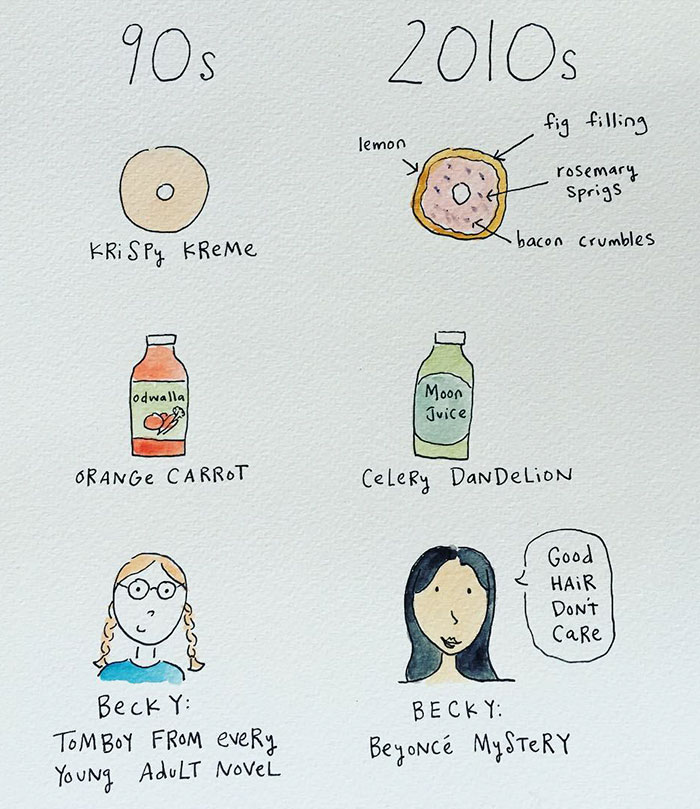 90s
2010s
KRiSPy KReMe
lemon
fig filling
rosemary
sprigs
bacon crumbles
odwalla
ORANGe CARRoT
Moon
Juice
CeLeRy DANDeLiON
BecKY:
ToMBoY FRoM eveRy
YouNg ADuLT NoveL
Good
HAiR
DoN't
CaRe
BECKY:
Beyoncé MySTeRY